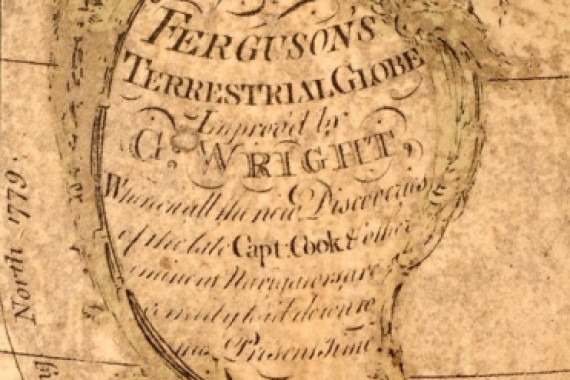 FERGUSON'S
TERRESTRIAL GLOBE
Improv'd by
G. WRIGHT,
Wherein all the new Discoveries
of the late Capt. Cook & other
eminent Navigators are
laid down to
Present Time
North 1779